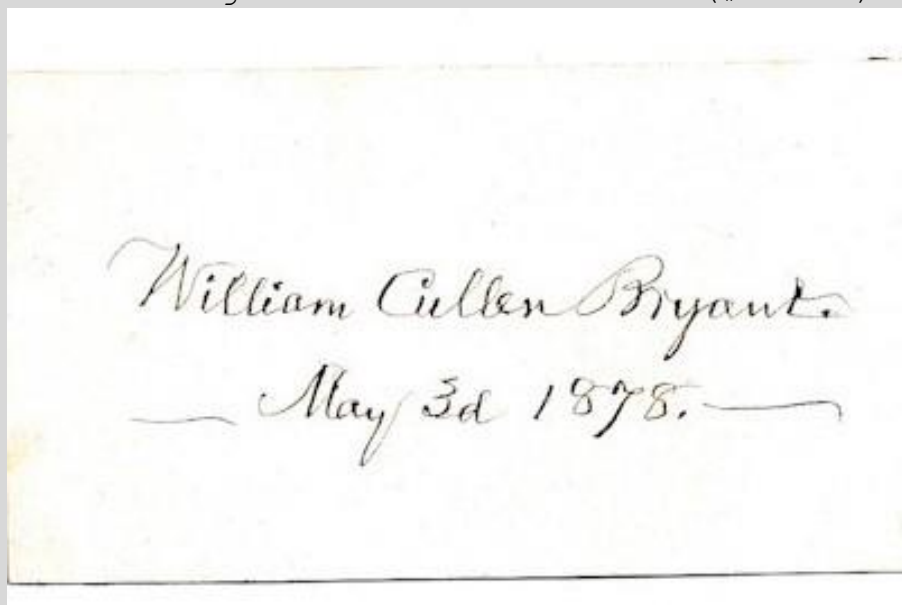 William Cullen Bryant.
— May 3d 1878. —